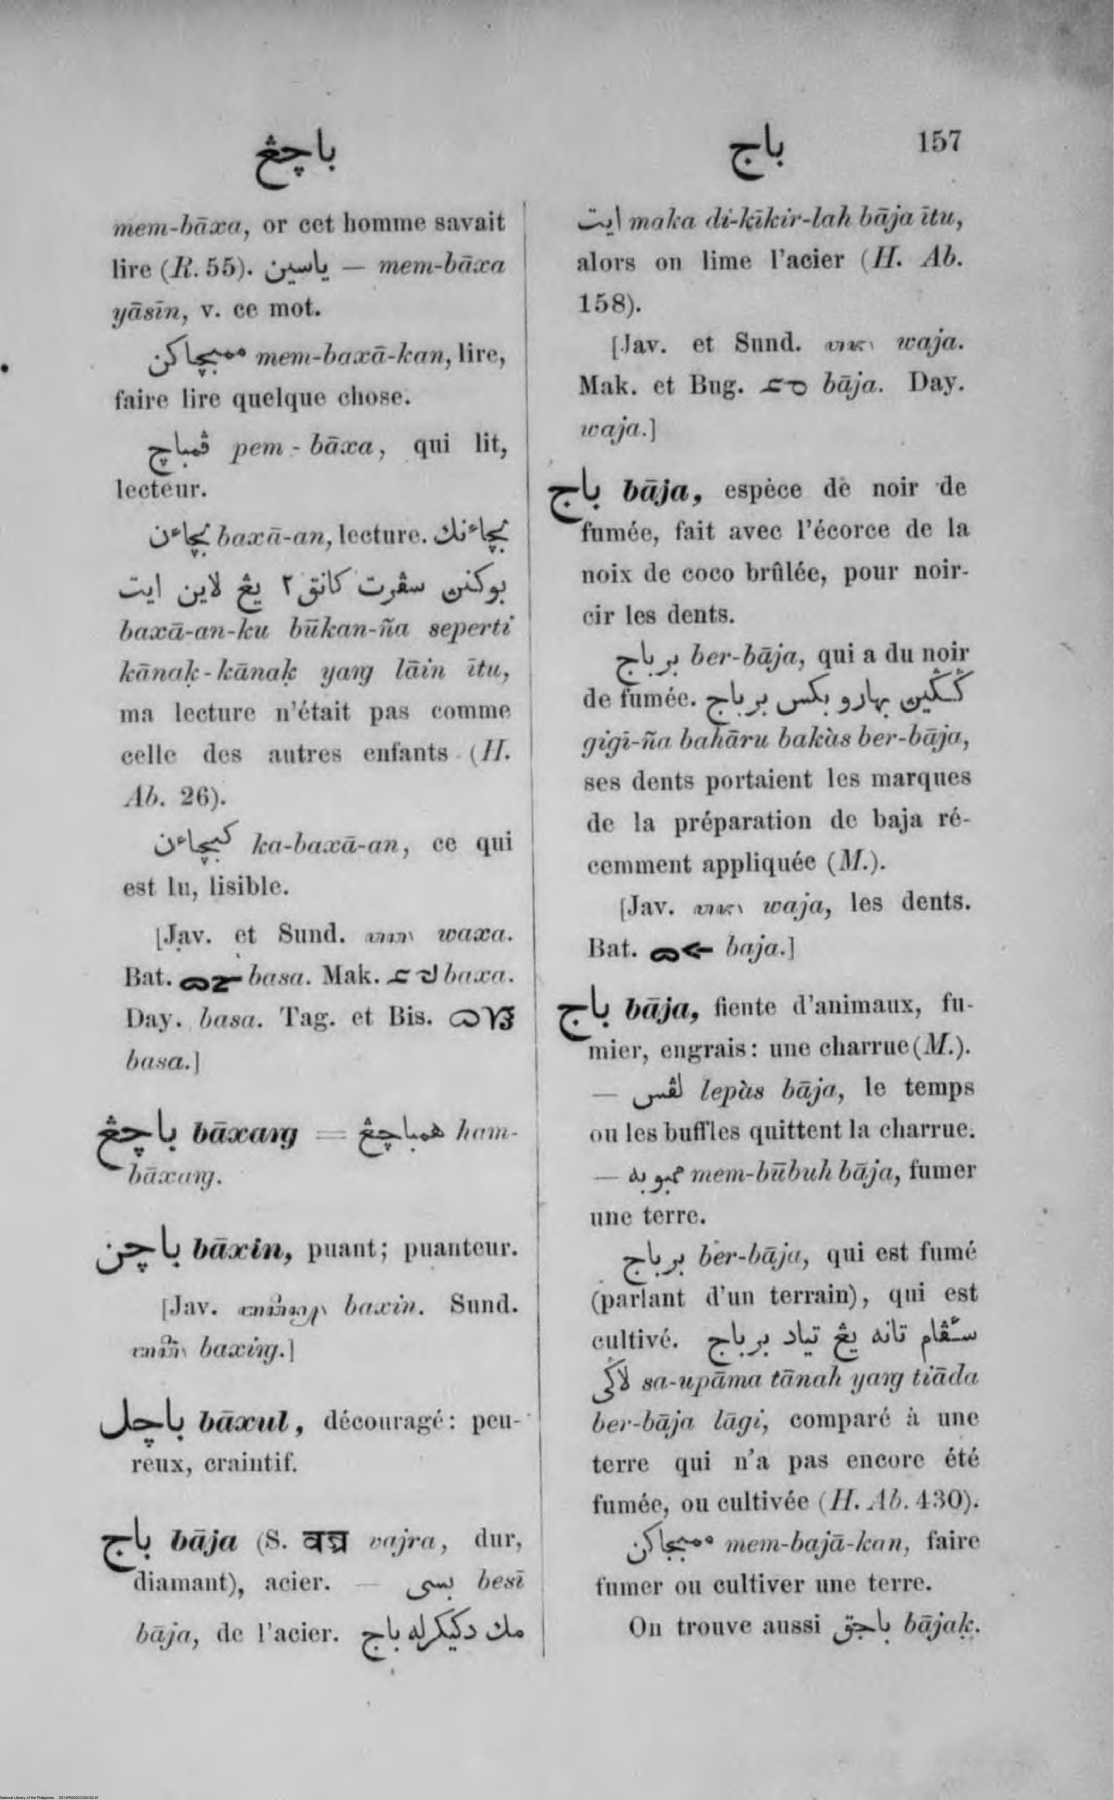 باچڠ
باج 157
mem-bāxa, or cet homme savait
lire (R. 55). ياسين — mem-bāxa
yāsīn, v. ce mot.
ممبچاكن mem-baxā-kan, lire,
faire lire quelque chose.
ڤمباچ pem-bāxa, qui lit,
lecteur.
بچاءن baxā-an, lecture. بچاءنك
بوكنن سڤرت كانق٢ يڠ لاين ايت
baxā-an-ku būkan-ña seperti
kānaḳ-kānaḳ yaŋ lāin ītu,
ma lecture n'était pas comme
celle des autres enfants (H.
Ab. 26).
كبچاءن ka-baxā-an, ce qui
est lu, lisible.
[Jav. et Sund. waxa.
Bat. basa. Mak. baxa.
Day. basa. Tag. et Bis.
basa.]
باچڠ bāxaŋ = همباچڠ ham-
bāxaŋ.
باچن bāxin, puant; puanteur.
[Jav. baxin. Sund.
baxiŋ.]
باچل bāxul, découragé: peu-
reux, craintif.
باج bāja (S. वज्र vajra, dur,
diamant), acier. — بسى besī
bāja, de l'acier. مك دكيكرله باج
ايت maka di-kīkir-lah bāja ītu,
alors on lime l'acier (H. Ab.
158).
[Jav. et Sund. waja.
Mak. et Bug. bāja. Day.
waja.]
باج bāja, espèce de noir de
fumée, fait avec l'écorce de la
noix de coco brûlée, pour noir-
cir les dents.
برباج ber-bāja, qui a du noir
de fumée. بهارو بكس برباج
gigī-ña bahāru bakàs ber-bāja,
ses dents portaient les marques
de la préparation de baja ré-
cemment appliquée (M.).
[Jav. waja, les dents.
Bat. baja.]
باج bāja, fiente d'animaux, fu-
mier, engrais: une charrue (M.).
— لڤس lepàs bāja, le temps
ou les buffles quittent la charrue.
— ممبوبه mem-būbuh bāja, fumer
une terre.
برباج ber-bāja, qui est fumé
(parlant d'un terrain), qui est
cultivé. سڤام تانه يڠ تياد برباج
لاݢى sa-upāma tānah yaŋ tiāda
ber-bāja lāgi, comparé à une
terre qui n'a pas encore été
fumée, ou cultivée (H. Ab. 430).
ممبجاكن mem-bajā-kan, faire
fumer ou cultiver une terre.
On trouve aussi باجق bājaḳ.